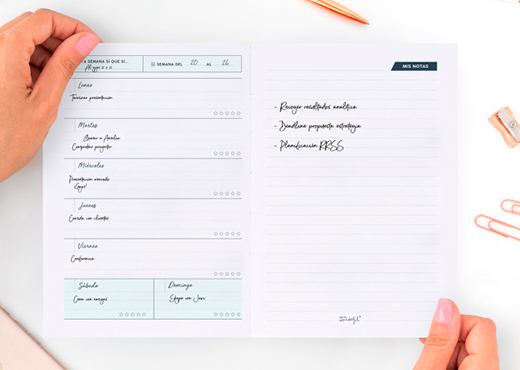 A SEMANA SÍ QUE SÍ...
SEMANA DEL 20 AL 26
Lunes
Terminar presentación
Martes
Llamar a Amalia
Comprobar
Miércoles
Presentación
Jueves
Comida con clientes
Viernes
Conferencia
Sábado
Cena con amigos
Domingo
con
MIS NOTAS
- Recoger resultados analítica
- Deadline propuesta estrategia
- Planificación RRSS